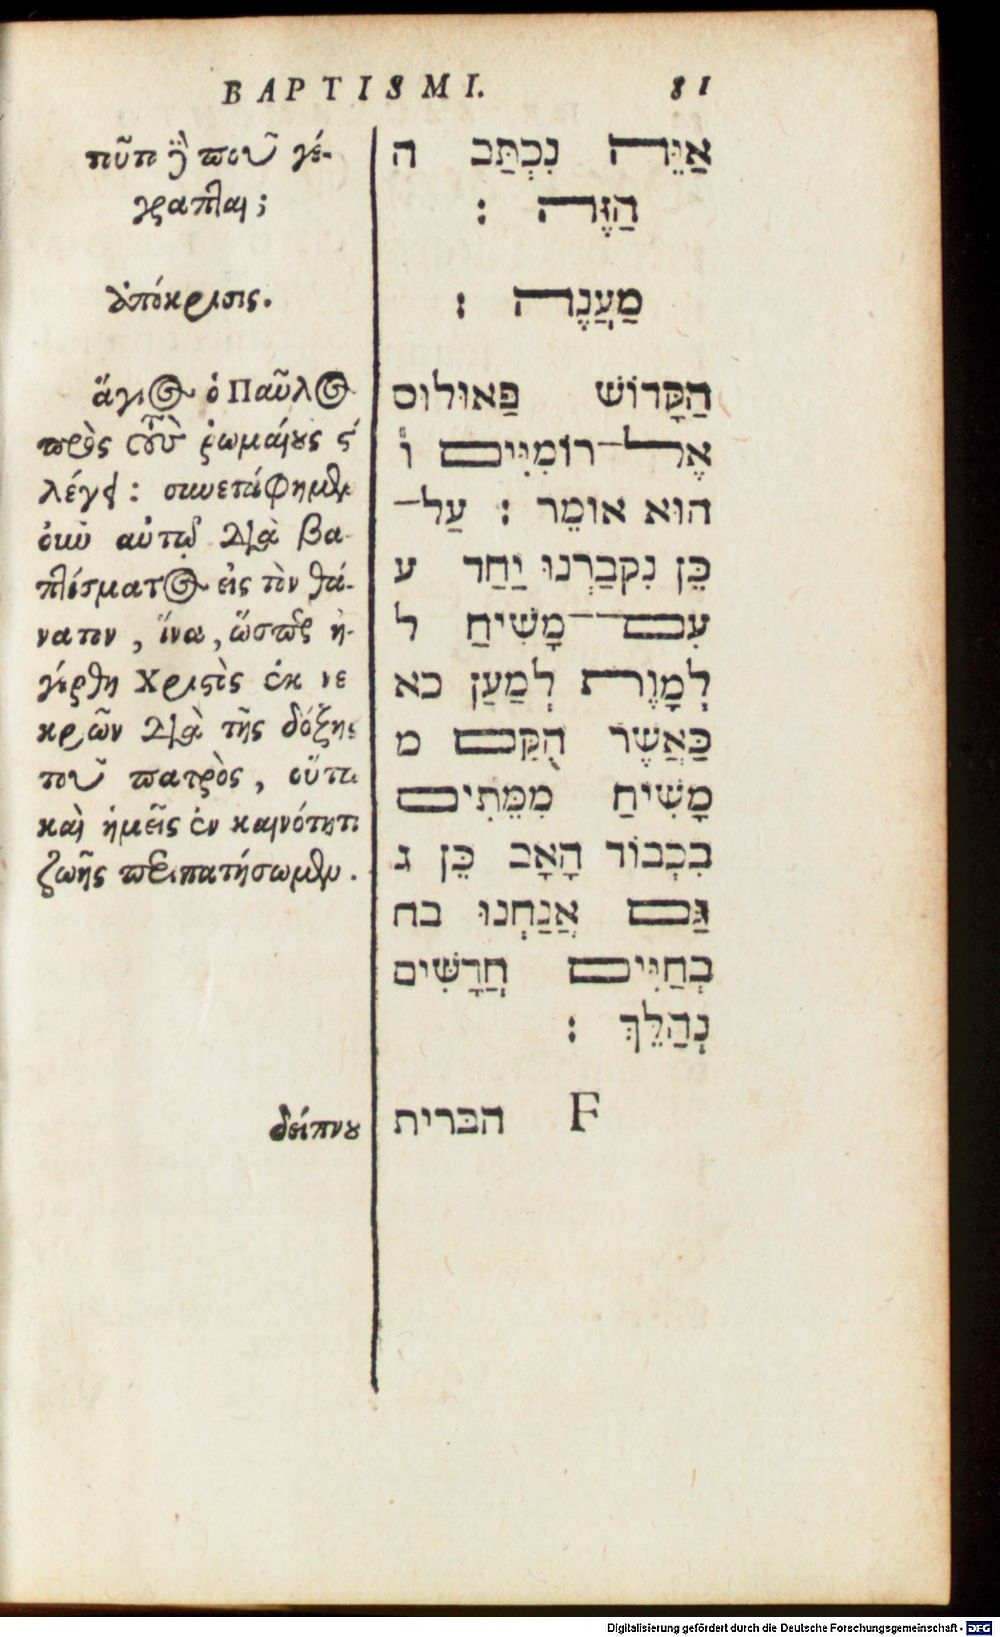 BAPTISMI. 81
τοῦτο δὲ ποῦ γέ-
γραπται;
ἀπόκρισις.
ἅγιος ὁ Παῦλος
πρὸς τοὺς ῥωμαίους ϛ΄
λέγει: συνετάφημεν
οὖν αὐτῷ διὰ βα-
πτίσματος εἰς τὸν θά-
νατον, ἵνα, ὥσπερ ἠ-
γέρθη Χριστὸς ἐκ νε
κρῶν διὰ τῆς δόξης
τοῦ πατρὸς, οὕτω
καὶ ἡμεῖς ἐν καινότητι
ζωῆς περιπατήσωμεν.
δείπνου
אַיֵּה נִכְתַּב ה
הַזֶּה :
מַעֲנֶה :
הַקָּדוֹשׁ פַּאוּלוּס
אֶל־רוֹמִיִּים ו
הוּא אוֹמֵר : עַל־
כֵּן נִקְבַּרְנוּ יַחַד ע
עִם־מָשִׁיחַ ל
לְמָוֶת לְמַעַן כא
כַּאֲשֶׁר הֻקַּם מ
מָשִׁיחַ מִמֵּתִים
בִּכְבוֹד הָאָב כֵּן ג
גַּם אֲנַחְנוּ בח
בְּחַיִּים חֲדָשִׁים
נְהַלֵּךְ :
F הברית